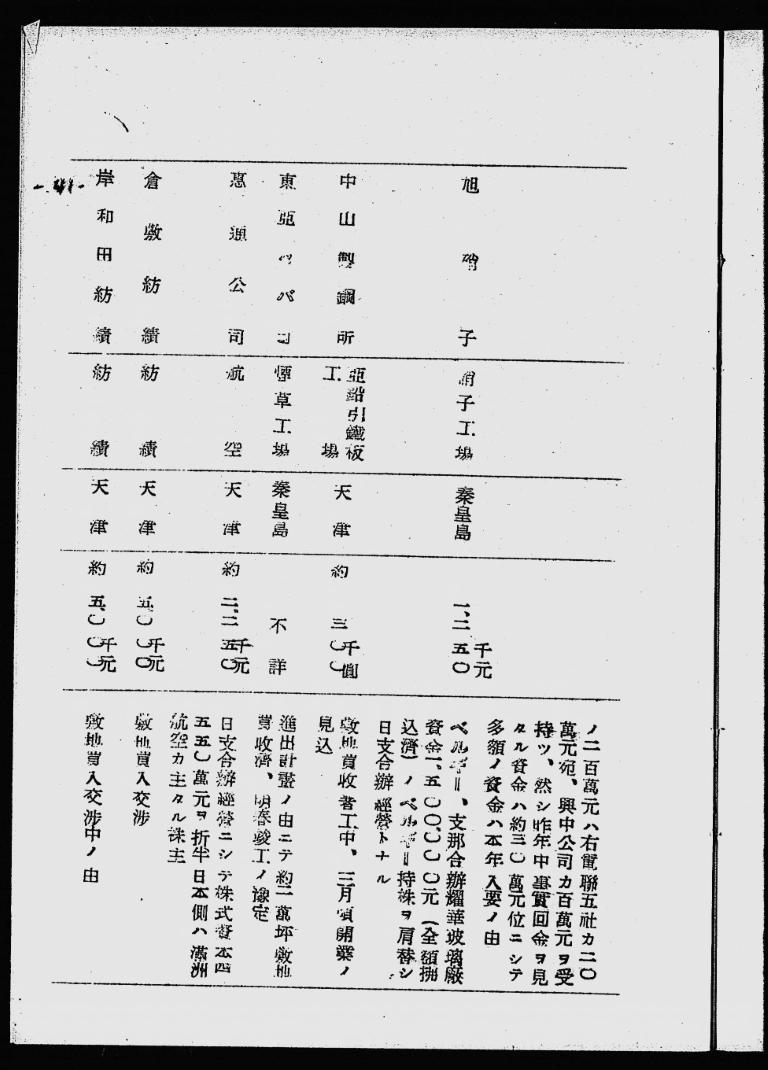 ノ二百萬元ハ右電聯五社カ二〇
萬元宛、興中公司カ百萬元ヲ受
持ツ、然シ昨年中事實回金ヲ見
タル資金ハ約三〇萬元位ニシテ
多額ノ資金ハ本年入要ノ由
旭硝子
硝子工場
秦皇島
一、二五〇千元
ベルギー、支那合辦耀華玻璃廠
資金一、五〇〇〇〇〇元(全額拂
込濟)ノベルギー持株ヲ肩替シ
日支合辦經營トナル
中山製鋼所
亞鉛引鐵板
工場
天津
約三〇〇千圓
敷地買收着工中、三月頃開業ノ
見込
東亞タバコ
煙草工場
秦皇島
不詳
進出計畫ノ由ニテ約二萬坪敷地
買收濟、明春竣工ノ豫定
惠通公司
航空
天津
約二、二五〇千元
日支合辦經營ニシテ株式資本四
五〇萬元ヲ折半日本側ハ滿洲
航空カ主タル株主
倉敷紡績
紡績
天津
約五、〇〇〇千元
敷地買入交渉
岸和田紡績
紡績
天津
約五、〇〇〇千元
敷地買入交渉中ノ由